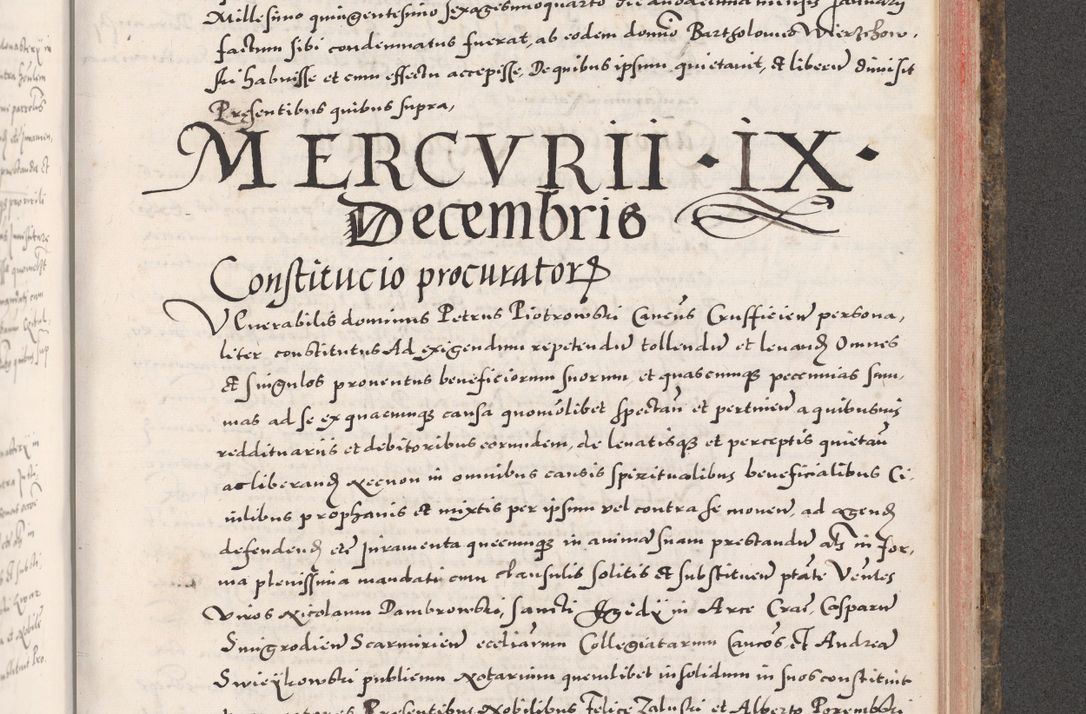 Millesimo quingentesimo sexagesimoquarto die duodecima mensis Januarij
factum sibi condemnatus fuerat, ab eodem domino Bartholomeo Wierzchow-
ski habuisse et cum effectu accepisse, De quibus ipsum quietauit, et liberu dimisit
Presentibus quibus supra,
MERCVRII · IX ·
Decembris
Constitucio procurator
Venerabilis dominus Petrus Piotrowski Caneus Crusficien persona,
liter constitutus Ad exigendum repetendu tollendu et leuand Omnes
et singulos prouentus beneficiorum suorum, et quascumq pecennias sum,
mas ad se ex quacumq causa quomolibet spectan et pertinen a quibusuis
reddituariis et debitoribus eorumdem, de leuatisq et perceptis quietan
ac liberand necnon in omnibus causis spiritualibus beneficialibus Ci-
uilibus prophanis et mixtis per ipsum vel contra se mouen, ad agend
defendend etc Juramenta quecumq in anima suam prestandu als in for,
ma plenissima mandati cum clausulis solitis et substituen ptate Ventes
viros Nicolaum Dambrowski, sancti Egidij in Arce Crac Casparu
Smigrodien Scarmirien eccliarum Collegiatarum Cancos et Andrea
Swieykowski publicum Notarium quemlibet in solidum in suos constituit
Presentibus Nobilibus Felice Zaluski et Alberto Porembski